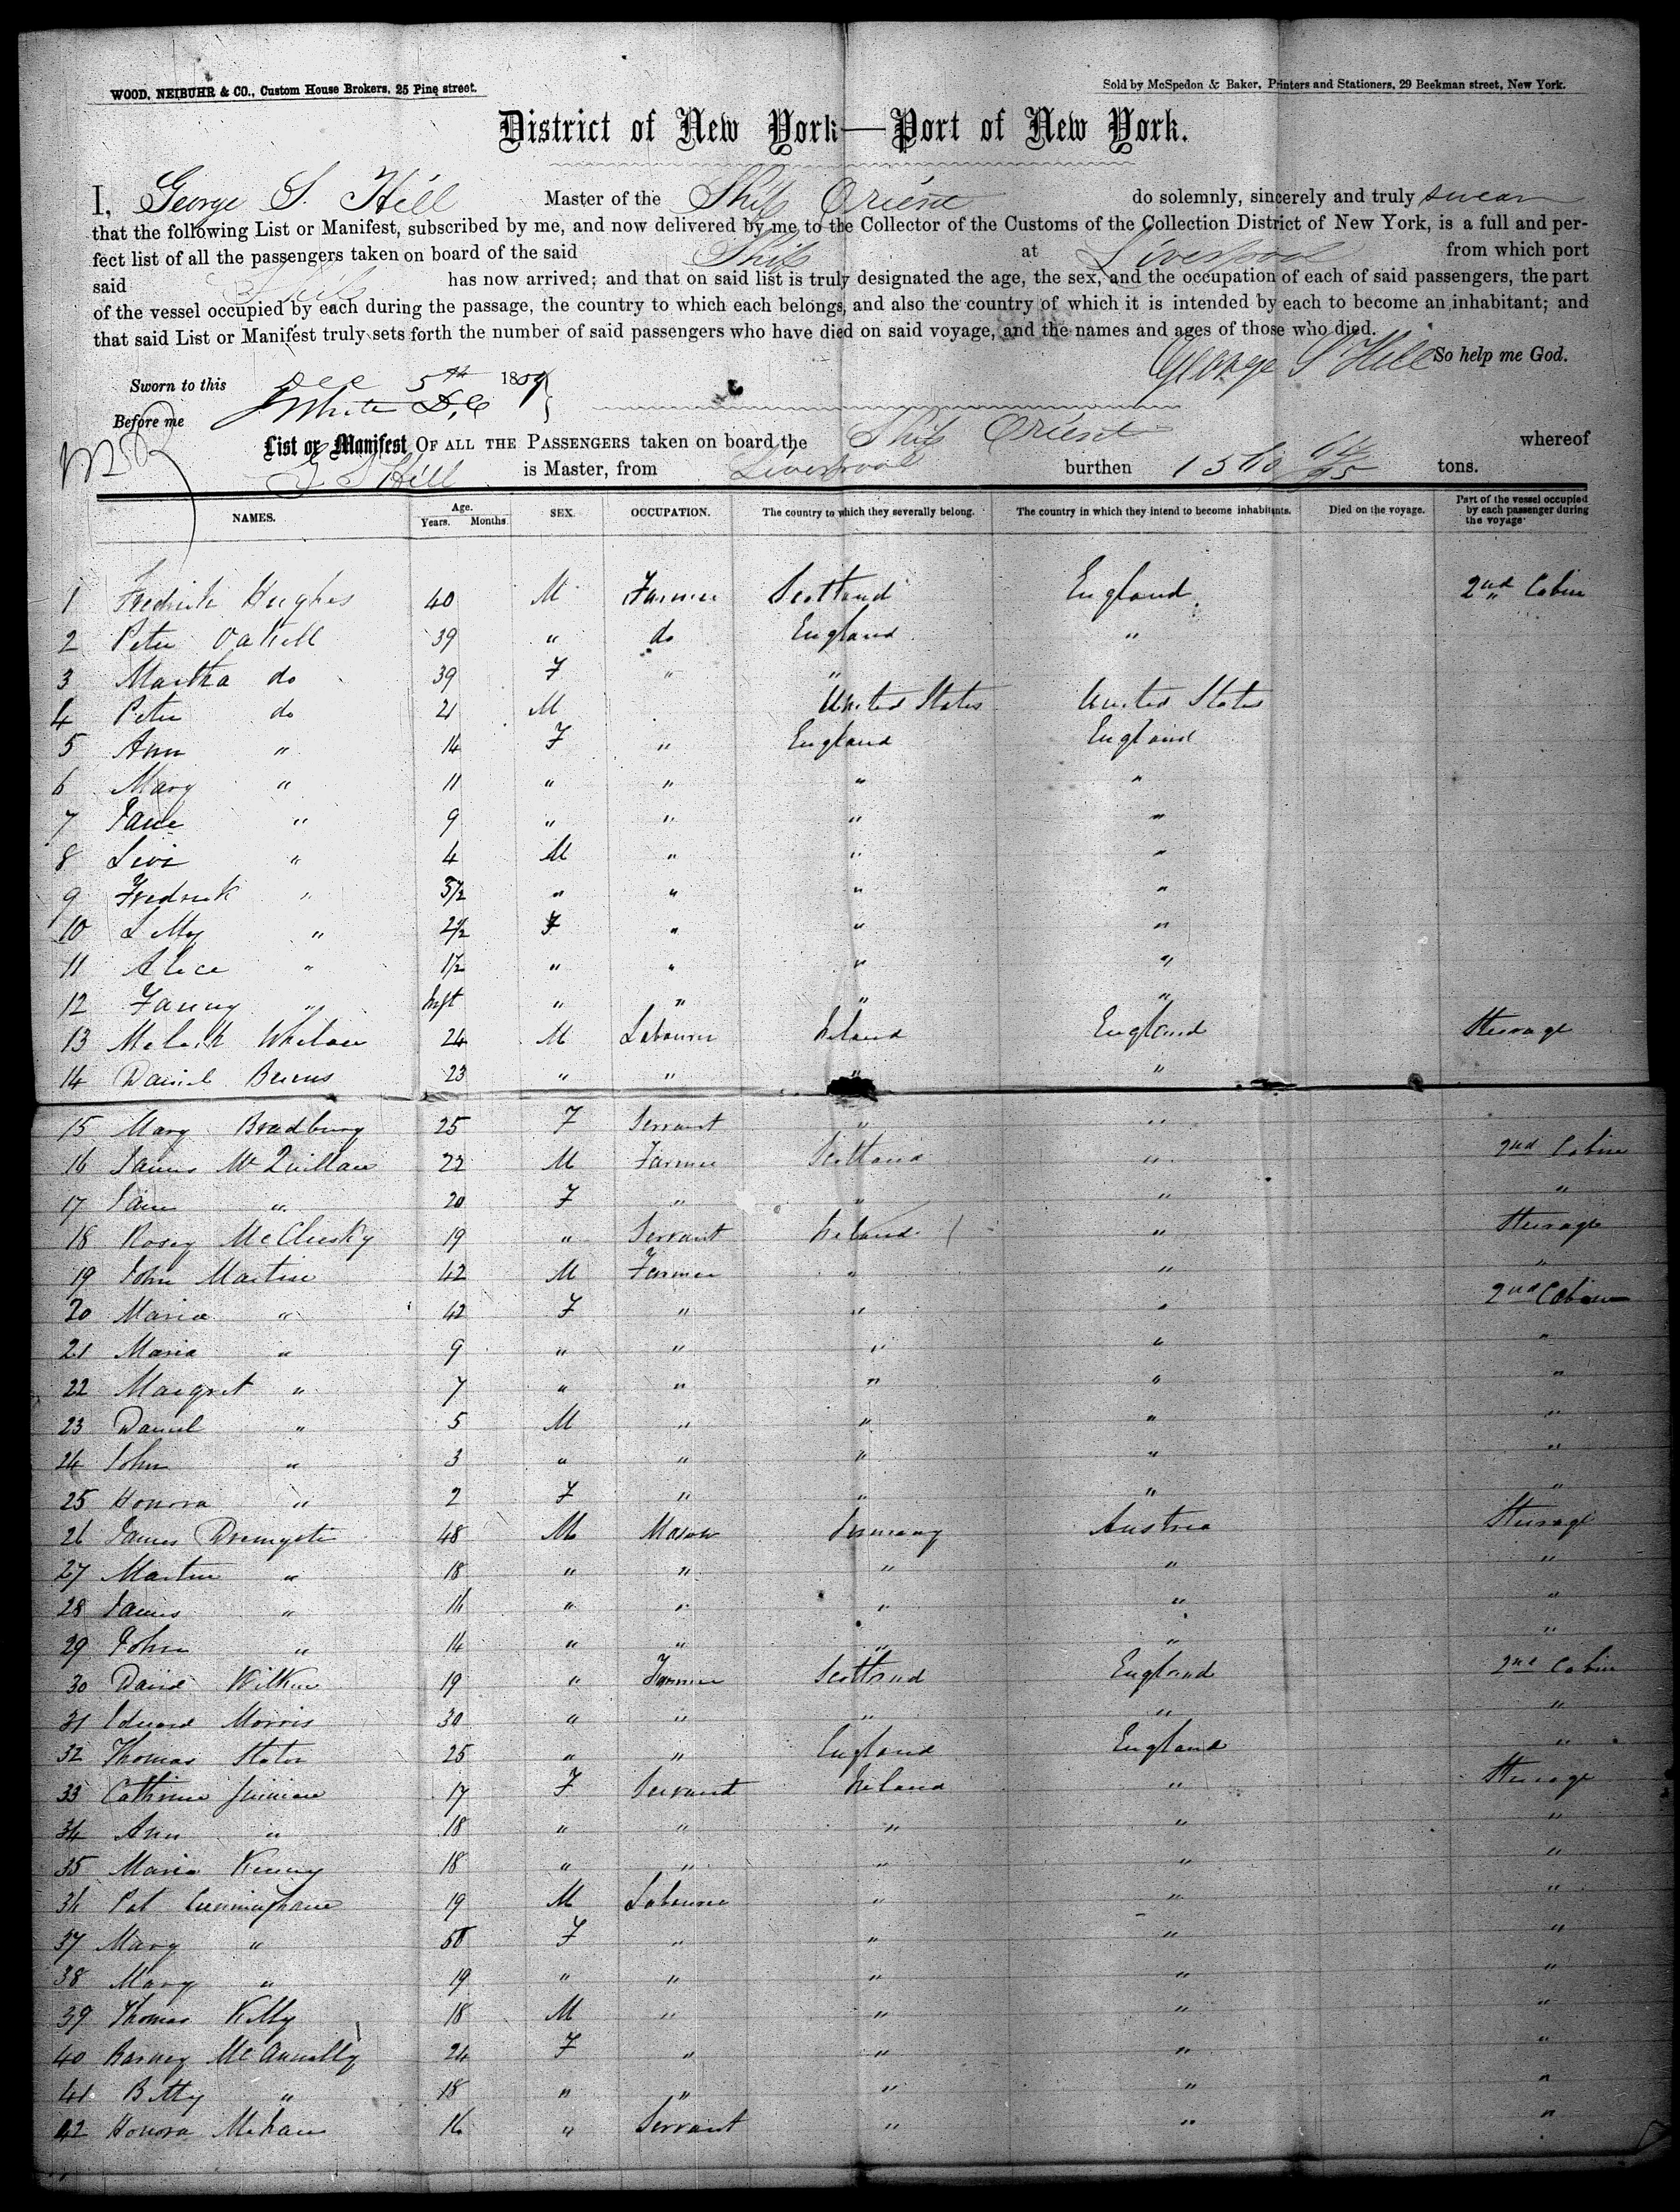 WOOD, NEIBUHR & CO., Custom House Brokers, 25 Pine street.
Sold by McSpedon & Baker, Printers and Stationers, 29 Beekman street, New York.
District of New York—Port of New York.
I, George S. Hill Master of the Ship Orient do solemnly, sincerely and truly swear
that the following List or Manifest, subscribed by me, and now delivered by me to the Collector of the Customs of the Collection District of New York, is a full and per-
fect list of all the passengers taken on board of the said Ship at Liverpool from which port
said Ship has now arrived; and that on said list is truly designated the age, the sex, and the occupation of each of said passengers, the part
of the vessel occupied by each during the passage, the country to which each belongs, and also the country of which it is intended by each to become an inhabitant; and
that said List or Manifest truly sets forth the number of said passengers who have died on said voyage, and the names and ages of those who died.
George S Hill So help me God.
Sworn to this Dec 5th 1857
Before me White D.C
List or Manifest OF ALL THE PASSENGERS taken on board the Ship Orient whereof
G S Hill is Master, from Liverpool burthen 1560 64/95 tons.
NAMES. Age. Years. Months. SEX. OCCUPATION. The country to which they severally belong. The country in which they intend to become inhabitants. Died on the voyage. Part of the vessel occupied by each passenger during the voyage.
1 Fredrick Hughes 40 M Farmer Scotland England 2nd Cabin
2 Peter 39 " do England "
3 Martha do 39 F " "
4 Peter do 21 M United States United States
5 Ann " 14 F " England England
6 Mary " 11 " " " "
7 Jane " 9 " " " "
8 Levi " 4 M " " "
9 Fredrick " 3½ " " " "
10 " 2½ F " " "
11 Alice " 1½ " " " "
12 Fanny " Inft " " " "
13 Whelan 24 M Labourer Ireland England Steerage
14 Daniel Burns 23 " " " "
15 Mary Bradbury 25 F Servant " "
16 James McQuillan 22 M Farmer Scotland " 2nd Cabin
17 Jane " 20 F " " " "
18 Rosey McClusky 19 " Servant Ireland " Steerage
19 John Martin 42 M Farmer " " "
20 Maria " 42 F " " " 2nd Cabin
21 Maria " 9 " " " " "
22 Margret " 7 " " " " "
23 Daniel " 5 M " " " "
24 John " 3 " " " " "
25 Honora " 2 F " " " "
26 James 48 M Mason Germany Austria Steerage
27 Martin " 18 " " " " "
28 James " 16 " " " " "
29 John " 14 " " " " "
30 David Wilkie 19 " Farmer Scotland England 2nd Cabin
31 Edward Morris 30 " " " " "
32 Thomas 25 " " England England "
33 Cathrine 17 F Servant Ireland " Steerage
34 Ann " 18 " " " " "
35 Maria Kenny 18 " " " " "
36 Pat Cunningham 19 M Labourer " " "
37 Mary " 50 F " " " "
38 Mary " 19 " " " " "
39 Thomas Kelly 18 M " " " "
40 Barney McAnnally 24 F " " " "
41 Betty " 18 " " " " "
42 Honora Mehan 16 " Servant " " "